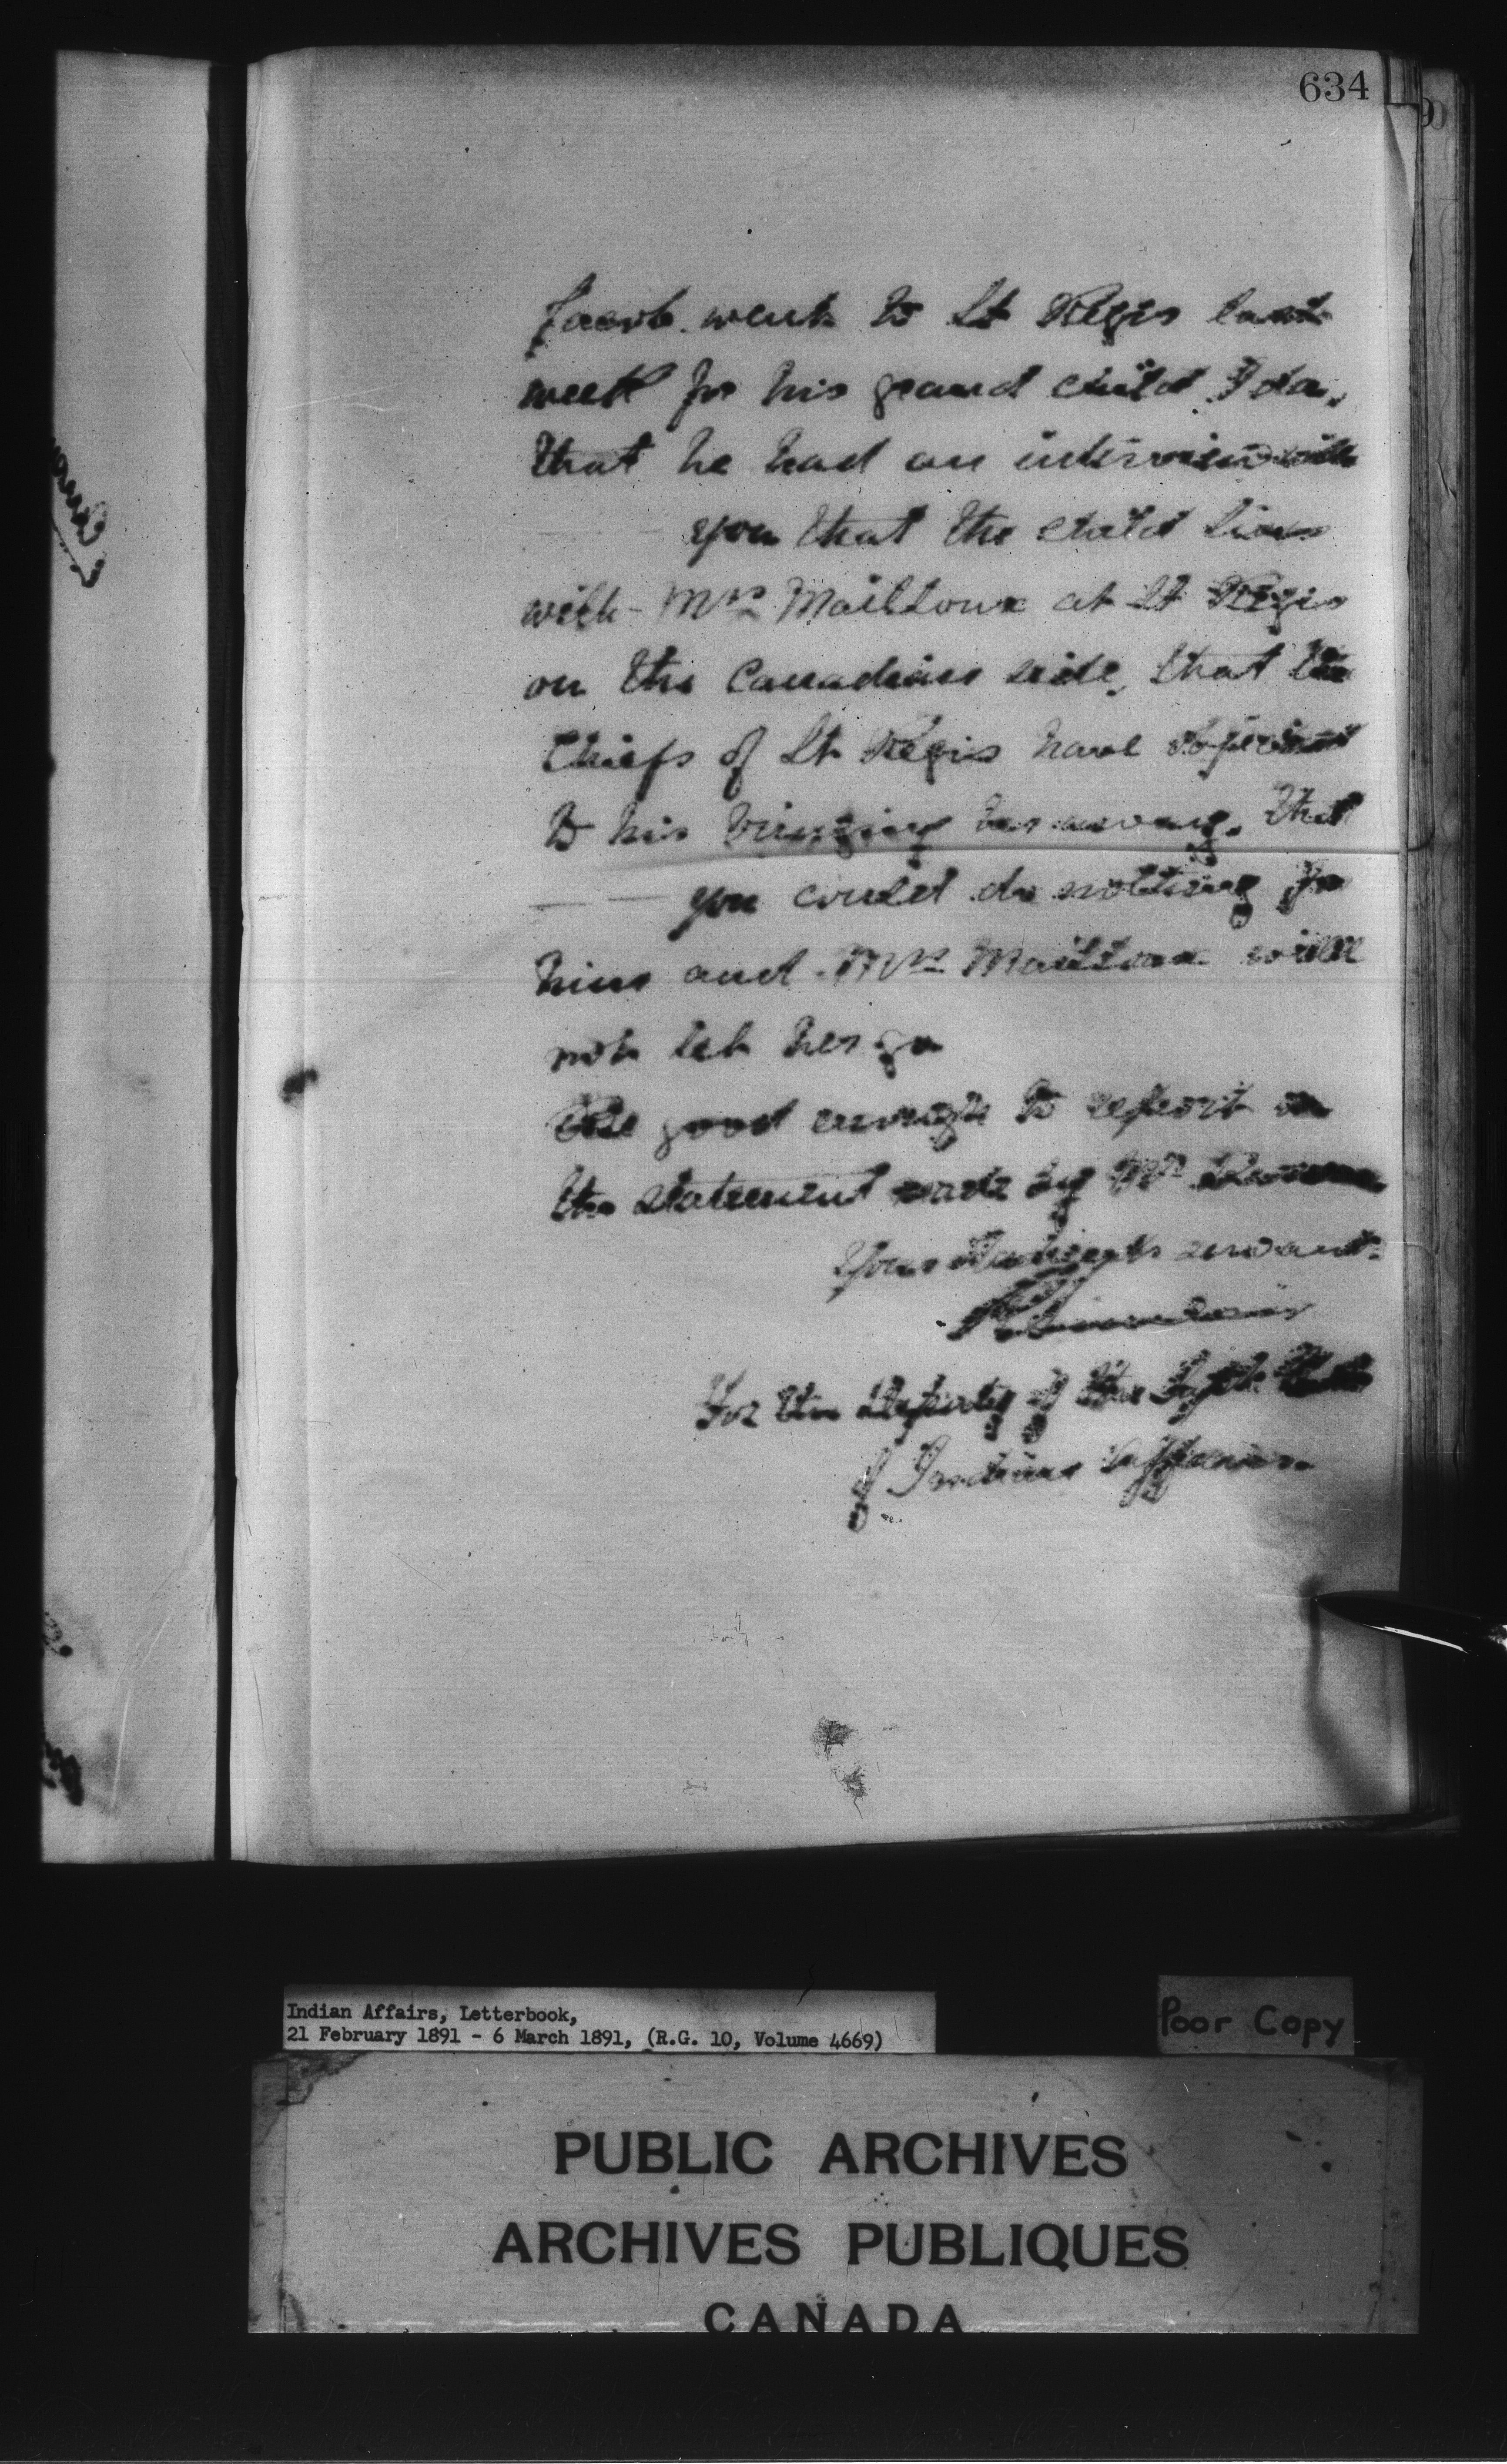 634
Jacob went to St Regis last
week for his grand child Ida,
that he had an interview with
you that the child lives
with Mrs Mailloux at St Regis
on the Canadian side, that the
Chiefs of St Regis have objected
to his bringing her away. that
you could do nothing for
him and Mrs Mailloux will
not let her go
Be good enough to report on
the statement made by Mr
Your obedient servant.
For the Deputy of the Supt
of Indian Affairs.
Indian Affairs, Letterbook,
21 February 1891 - 6 March 1891, (R.G. 10, Volume 4669)
Poor Copy
PUBLIC ARCHIVES
ARCHIVES PUBLIQUES
CANADA